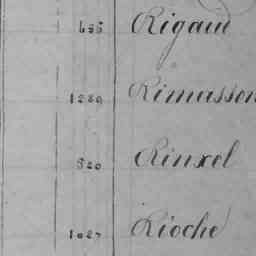 Rigaud
1289 Rimasson
820 Rinxel
1027 Rioche